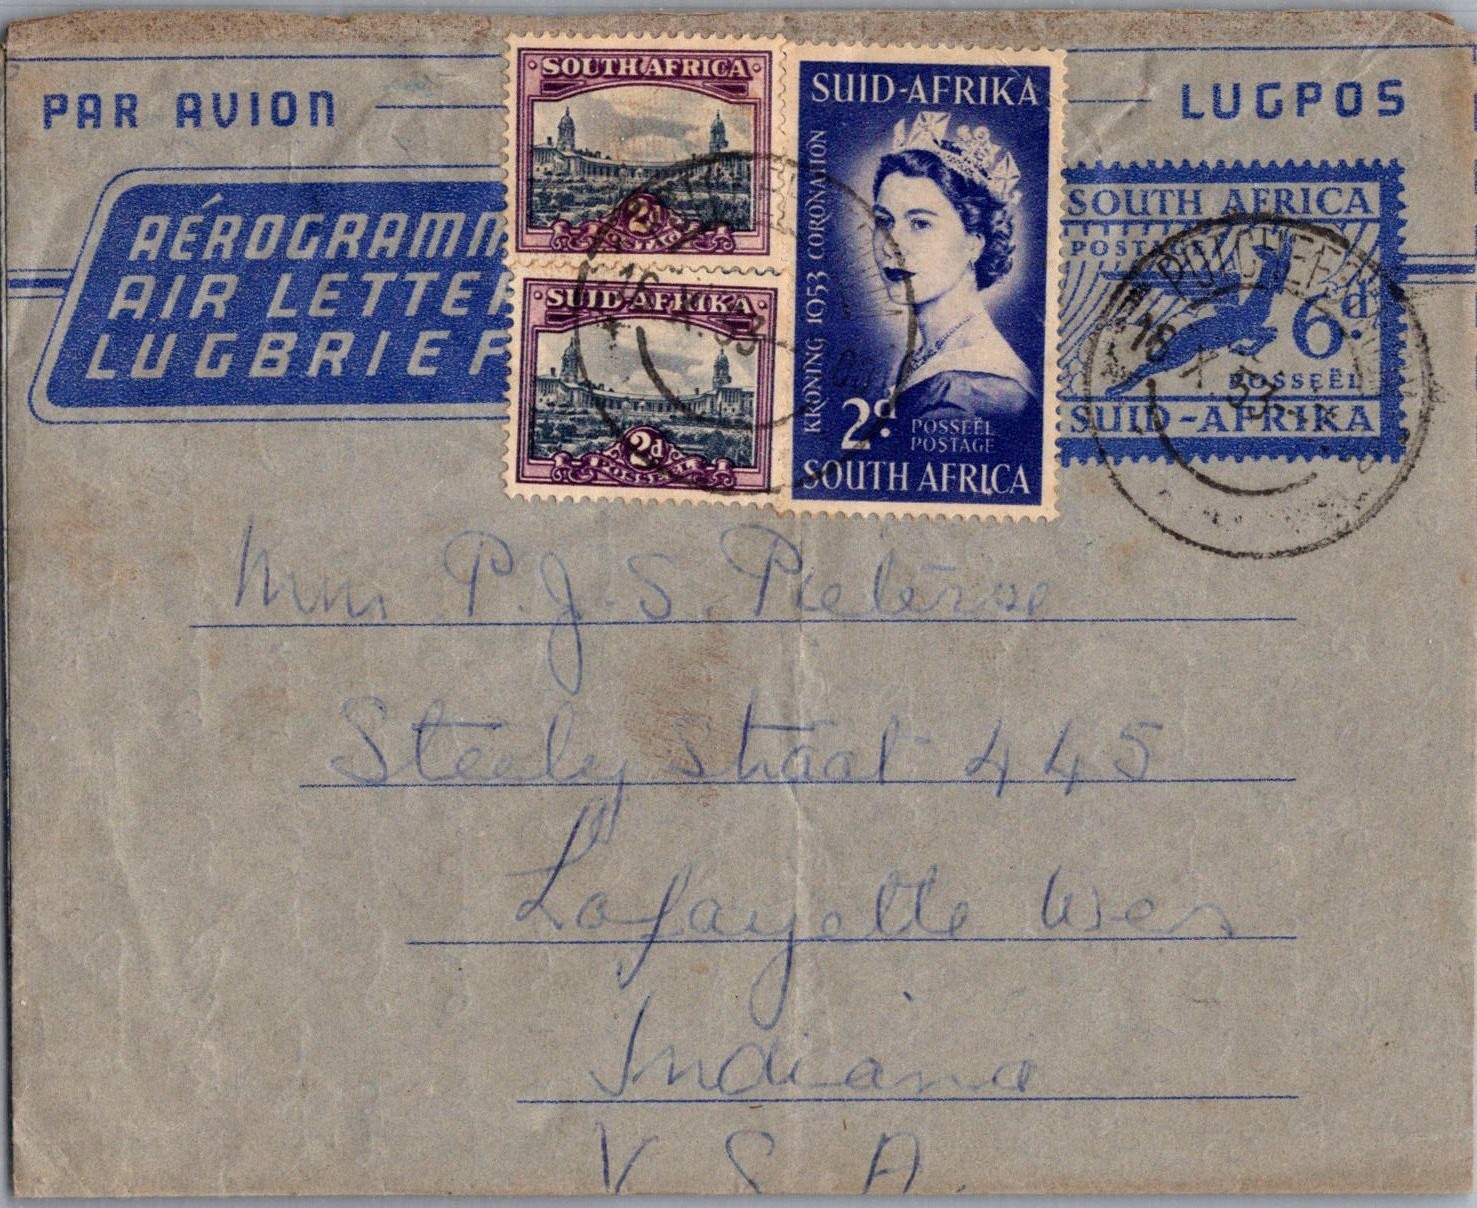 PAR AVION
LUGPOS
AÉROGRAMM
AIR LETTER
LUGBRIEF
SOUTH AFRICA
2d
POSTAGE
SUID-AFRIKA
2d
POSSEËL
SUID-AFRIKA
KRONING 1953 CORONATION
2d
POSSEËL
POSTAGE
SOUTH AFRICA
SOUTH AFRICA
POSTAGE
6d
POSSEËL
SUID-AFRIKA
16 X 53
POTCHEFSTROOM
16 X 53
P. J. S. Pieterse
Steely Straat 445
Lafayette Wes
Indiana
V. S. A.